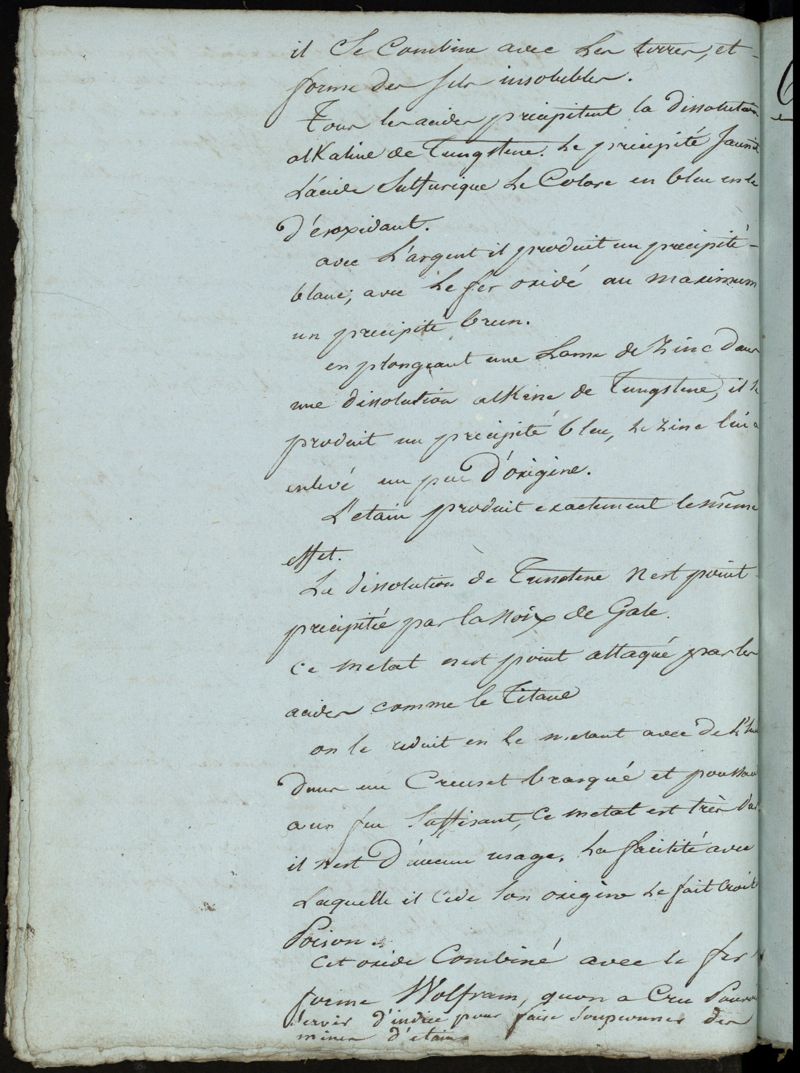 il Se Combine avec Les terres, et
forme des sels insolubles.
Tous les acides precipitent la dissolution
alkaline de Tungstene. Le precipité jaunit
L'acide Sulfurique Le Colore en bleu en le
d'éroxidant.
avec L'argent il produit un precipité
blanc; avec Le fer oxidé au maximum
un precipité brun.
en plongeant une Lame de Zinc dans
une dissolution alkine de Tungstene, il se
produit un precipité bleu, Le Zinc lui a
enlevé un peu d'oxigine.
L'etain produit exactement le même
effet.
La dissolution de Tunstene n'est point
precipitée par la noix de Gale.
Ce metal n'est point attaqué par les
acides comme le Titane
on le reduit en le metant avec de l'
dans un Creuset brasqué et poussant
a un feu Suffisant, Ce metal est très dur
il n'est d'aucun usage. La facilité avec
Laquelle il cede Son oxigène Le fait croire
Poison.
Cet oxide Combiné avec le fer
forme Wolfram, qu'on a Cru Pouvoir
Servir d'indice pour faire Soupconner des
mines d'etain